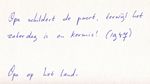 Opa schildert de poort, terwijl het
zaterdag is en kermis! (1947)
Opa op het land.